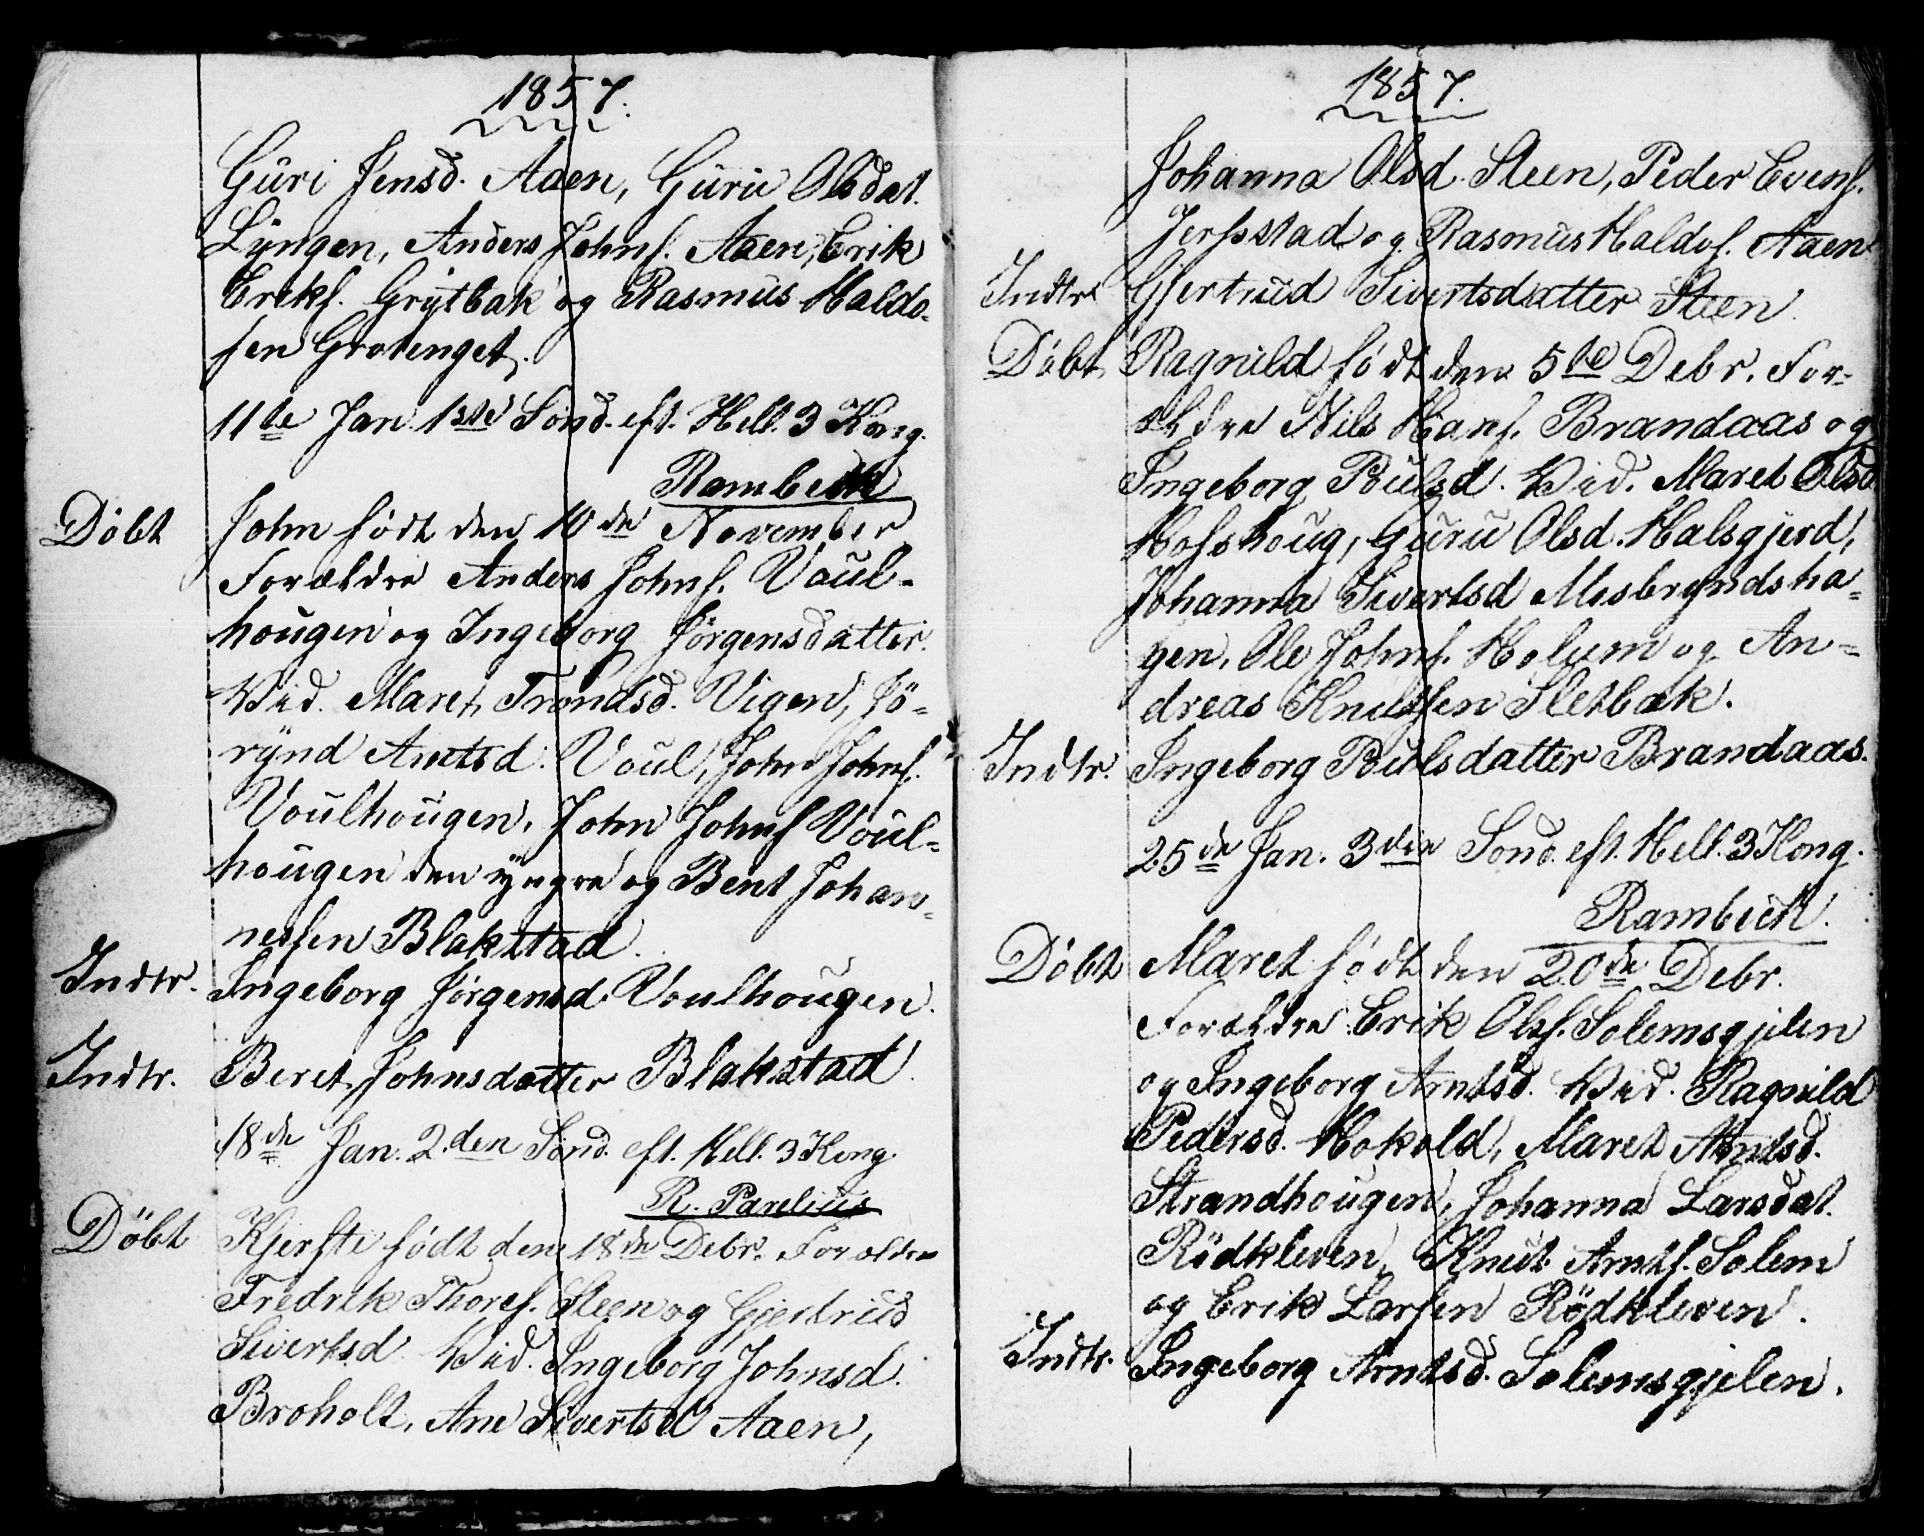 1857.
Guri Jensd. Aaen, Guru Olsdat.
Lyngen, Anders Johns. Aaen, Erik
Eriks. Grytbak og Rasmus Haldo-
sen Grotenget.
11te Jan 1ste Sönd. eft. Hell. 3 Kong.
Rambech
Döbt John födt den 10de November
Forældre Anders Johns. Voul-
hougen og Ingeborg Jörgensdatter.
Vid. Maret Trondsd. Vigen, Jö-
rynd Arntsd. Voul, John Johns.
Voulhougen, John Johns Voul-
hougen den yngre og Bent Johan-
nessen Blakstad.
Indtr. Ingeborg Jörgensd. Voulhougen.
Indtr. Beret Johnsdatter Blakstad.
18de Jan. 2den Sönd. eft. Hell. 3 Kong.
R. Parelius
Döbt Kjersti födt den 18de Debr. Forældre
Fredrik Thores. Steen og Gjertrud
Sivertsd Vid. Ingeborg Johnsd.
Broholt, Ane Sivertsd Aaen,
1857.
Johanna Olsd. Steen, Peder Evens.
Jersstad og Rasmus Haldos. Aaen
Indtr Gjertrud Sivertsdatter Steen.
Döbt Ragnild födt den 5te Debr. For-
ældre Nils Hans. Brandaas og
Ingeborg Poulsd. Vid. Maret Olsd
Hofshoug, Guru Olsd. Halsgjerd,
Johanna Sivertsd Mosbryndsha-
gen, Ole Johns. Holum og An-
dreas Knutsen Sletbak.
Indtr. Ingeborg Poulsdatter Brandaas.
25de Jan. 3die Sönd. eft. Hell. 3 Kong.
Rambech.
Döbt Maret födt den 20de Debr.
Forældre Erik Ols. Solemsgjelen
og Ingeborg Arntsd. Vid. Ragnild
Pedersd. Hokold, Maret Arntsd.
Strandhougen, Johanna Larsdat.
Rödkleven, Knut Arnts. Solem
og Erik Larsen Rödkleven.
Indtr. Ingeborg Arntsd. Solemsgjelen.